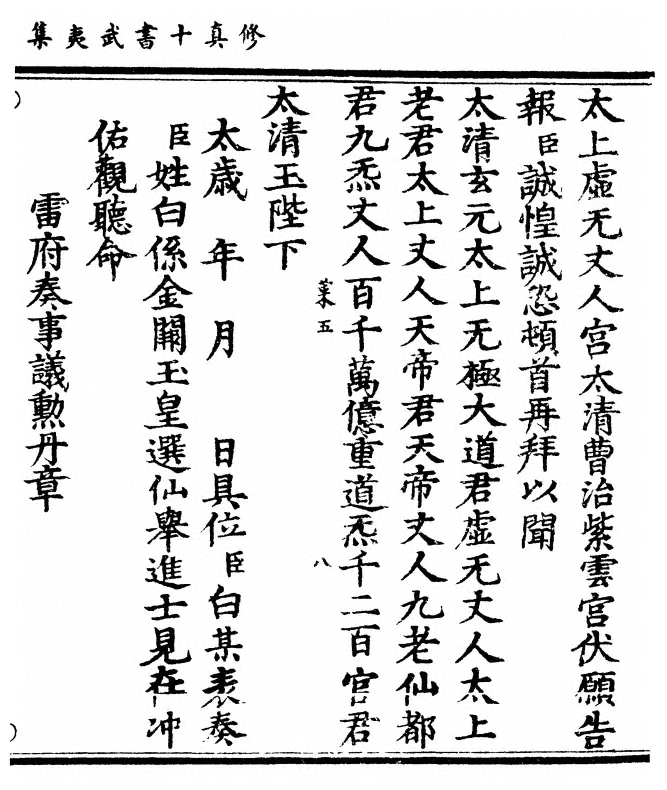 修真十書武夷集
太上虛无丈人宮太清曹治紫雲宮伏願告
報臣誠惶誠恐頓首再拜以聞
太清玄元太上无極大道君虛无丈人太上
老君太上丈人天帝君天帝丈人九老仙都
君九炁丈人百千萬億重道炁千二百官君
菜五
八
太清玉陛下
太歲 年 月 日具位臣白某表奏
臣姓白係金闕玉皇選仙舉進士見在冲
佑觀聽命
雷府奏事議勳丹章